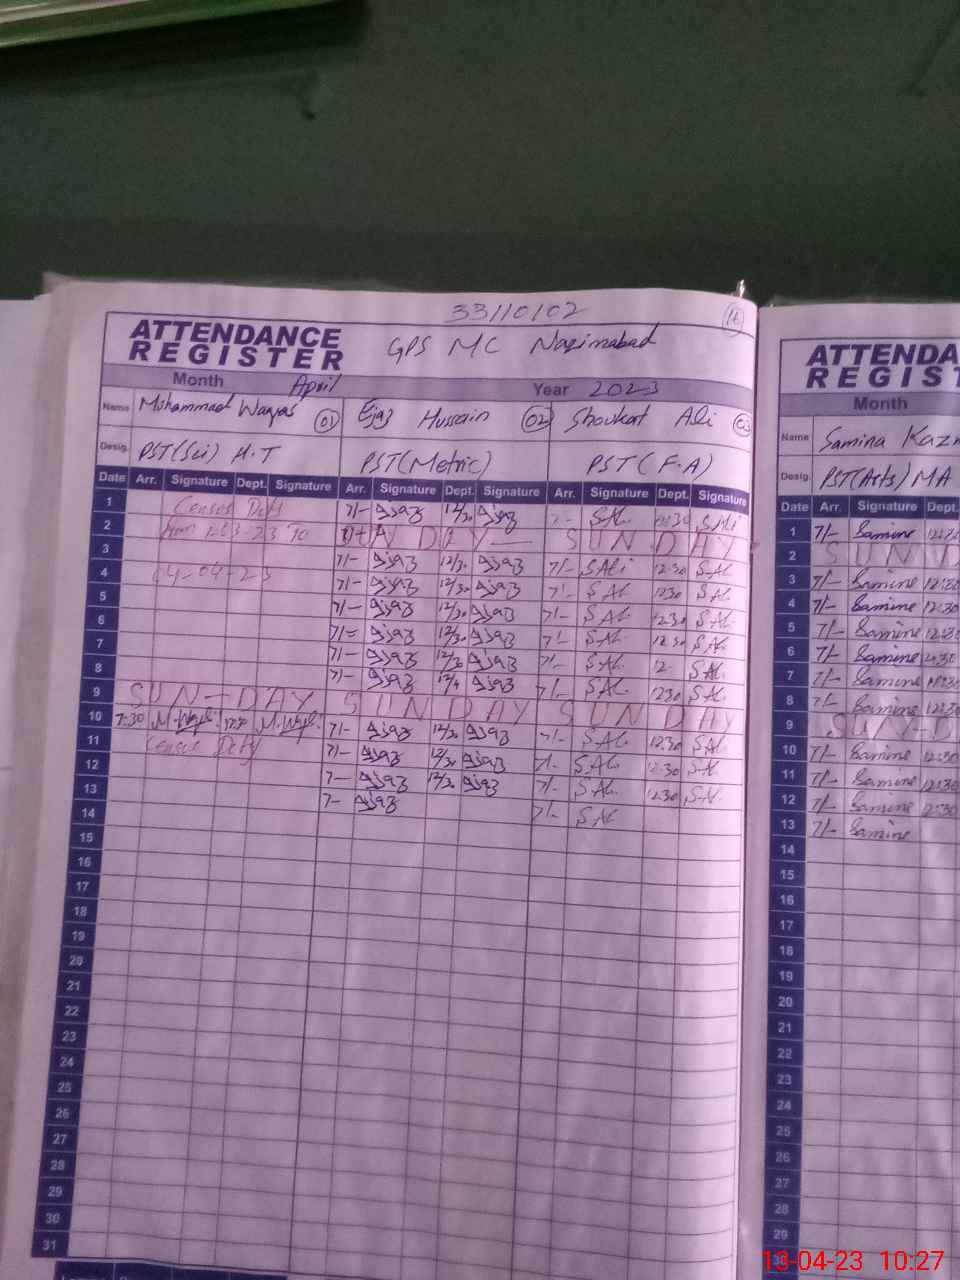 33110102
16
ATTENDANCE
REGISTER
GPS MC Nazimabad
Month April Year 2023
Name Muhammad Waqas 01 Ejaz Hussain 02 Shoukat Ali 03
Desig. PST(Sci) H.T PST(Metric) PST (F.A)
Date Arr. Signature Dept. Signature Arr. Signature Dept. Signature Arr. Signature Dept. Signature
1 Census Duty 7/- Ejaz 12/30 Ejaz 7/- S.Ali 12:30 S.Ali
2 from 1-03-23 To SUNDAY SUNDAY
3 7/- Ejaz 12/30 Ejaz 7/- S Ali 12:30 S.Al.
4 04-04-23 7/- Ejaz 12/30 Ejaz 7/- S.Al. 1230 S.Al.
5 7/- Ejaz 12/30 Ejaz 7/- S.Al. 12.30 S.Al.
6 7/- Ejaz 12/30 Ejaz 7/- S.Al. 12.30 S.Al.
7 7/- Ejaz 12/30 Ejaz 7/- S.Al. 12. S.Al.
8 7/- Ejaz Ejaz 7/- S.Al. 1230 S.Al.
9 SUN-DAY SUNDAY SUNDAY
10 7:30 M.Waqas M.Waqas 7/- Ejaz 12/30 Ejaz 7/- S.Al. 1230 S.Al.
11 Census Duty 7/- Ejaz 12/30 Ejaz 7/- S.Al. 12.30 S.Al.
12 7- Ejaz 12/30 Ejaz 7/- S.Al. 12.30 S.Al.
13 7- Ejaz 7/- S.Al.
14
15
16
17
18
19
20
21
22
23
24
25
26
27
28
29
30
31
ATTENDA
REGIST
Month
Name Samina Kazm
Desig. PST(Arts) MA
Date Arr. Signature Dept.
1 7/- Samine 12:30
2 SUND
3 7/- Samine 12:30
4 7/- Samine 12:30
5 7/- Samine 12:30
6 7/- Samine 12:30
7 7/- Samine 12:30
8 7/- Samine 12:30
9 SUN-D
10 7/- Samine 12:30
11 7/- Samine 12:30
12 7/- Samine 12:30
13 7/- Samine
14
15
16
17
18
19
20
21
22
23
24
25
26
27
28
29
13-04-23 10:27